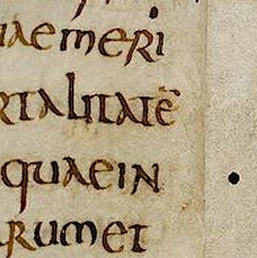 uaemeri
rtalitatē
quaein
rumet